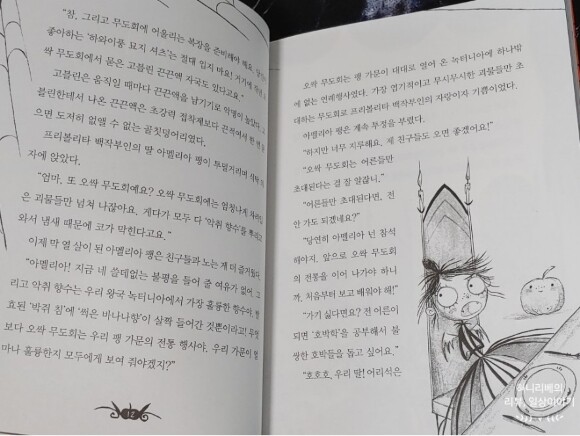 "참, 그리고 무도회에 어울리는 복장을 준비해야 해요. 당신이
좋아하는 '하와이풍 묘지 셔츠'는 절대 입지 마요! 거기에
싹 무도회에서 묻은 고블린 끈끈액 자국도 있다고요."
고블린은 움직일 때마다 끈끈액을 남기기로 악명이 높았다. 고
블린한테서 나온 끈끈액은 초강력 접착제보다 끈적여서 한 번
으면 도저히 없앨 수 없는 골칫덩어리였다.
프리볼리타 백작부인의 딸 아멜리아 팽이 투덜거리며 식탁
자에 앉았다.
"엄마, 또 오싹 무도회예요? 오싹 무도회에는 엄청나게
은 괴물들만 넘쳐 나잖아요. 게다가 모두 다 '악취 향수'를 뿌리고
와서 냄새 때문에 코가 막힌다고요."
이제 막 열 살이 된 아멜리아 팽은 친구들과 노는 게 더 즐거웠다.
"아멜리아! 지금 네 쓸데없는 불평을 들어 줄 여유가 없어. 그
리고 악취 향수는 우리 왕국 녹터니아에서 가장 훌륭한 향수야.
효된 '박쥐 침'에 '썩은 바나나향'이 살짝 들어간 것뿐이라고!
보다 오싹 무도회는 우리 팽 가문의 전통 행사야. 우리 가문이 얼
마나 훌륭한지 모두에게 보여 줘야겠지?"
12
오싹 무도회는 팽 가문이 대대로 열어 온 녹터니아에 하나밖
에 없는 연례행사였다. 가장 엽기적이고 무시무시한 괴물들만 초
대하는 무도회로 프리볼리타 백작부인의 자랑이자 기쁨이었다.
아멜리아 팽은 계속 투정을 부렸다.
"하지만 너무 지루해요. 제 친구들도 오면 좋겠어요!"
"오싹 무도회는 어른들만
초대된다는 걸 잘 알잖니."
"어른들만 초대된다면, 전
안 가도 되겠네요?"
"당연히 아멜리아 넌 참석
해야지. 앞으로 오싹 무도회
의 전통을 이어 나가야 하니
까, 처음부터 보고 배워야 해!"
"가기 싫다면요? 전 어른이
되면 '호박학'을 공부해서 불
쌍한 호박들을 돕고 싶어요."
"호호호, 우리 딸! 어리석은
허니리베의
리뷰, 일상이야기